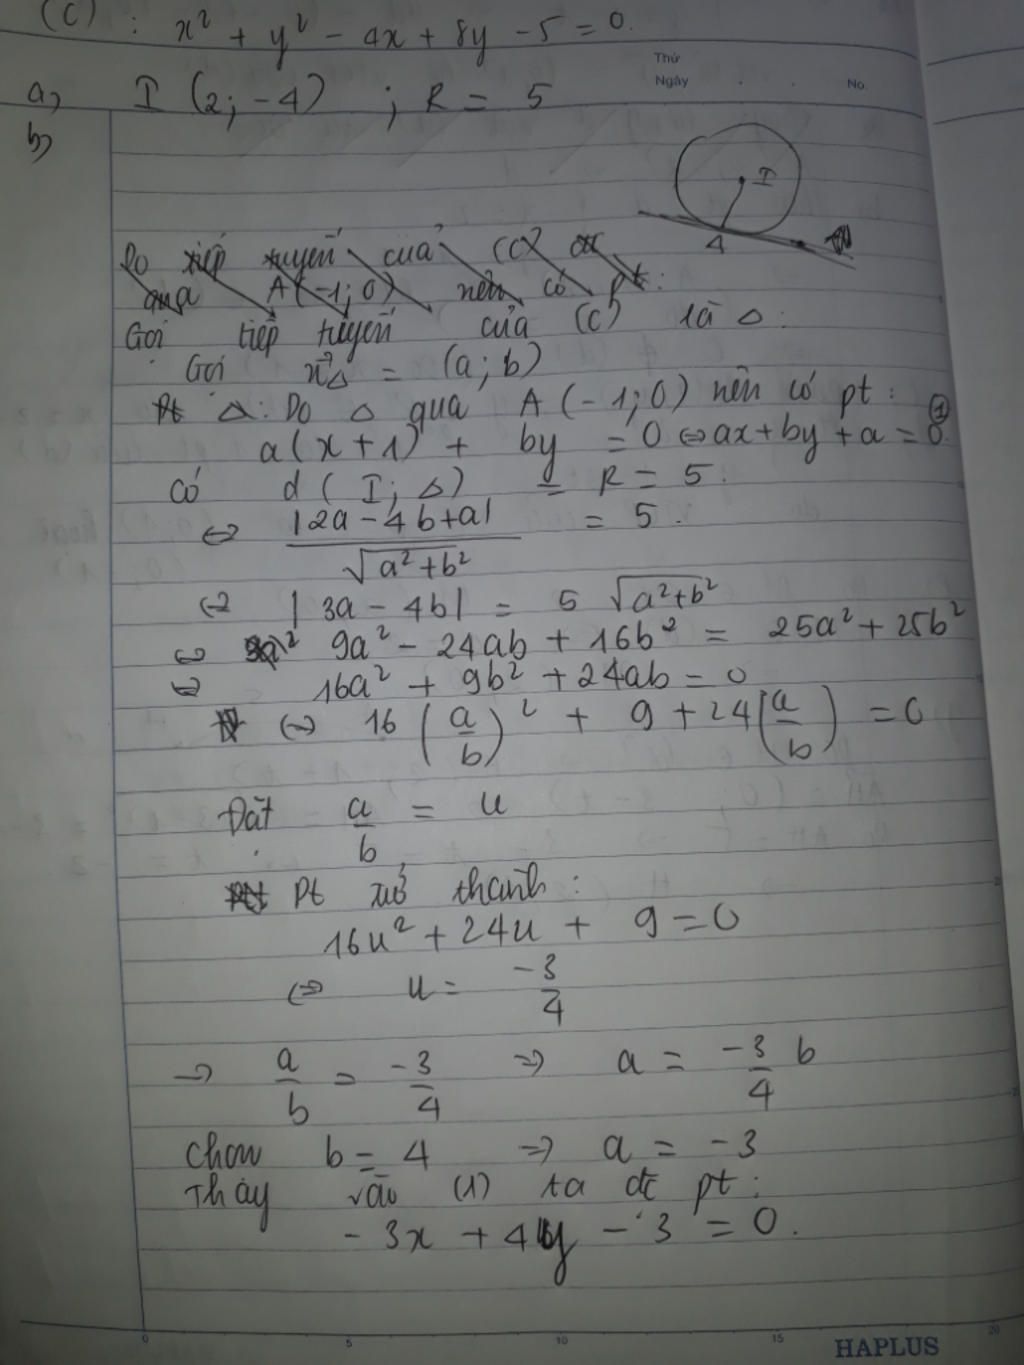 (C) : x² + y² - 4x + 8y - 5 = 0.
Thứ
Ngày . . No.
a, I (2; -4) ; R = 5
b,
I
A
Do tiếp tuyến của (C)
qua A(-1; 0) nên có pt:
Gọi tiếp tuyến của (C) là Δ:
Gọi n⃗Δ = (a; b)
Pt Δ: Do Δ qua A (-1; 0) nên có pt:
a(x + 1) + by = 0 ⇔ ax + by + a = 0. (1)
Có d ( I; Δ) = R = 5.
⇔ |2a - 4b + a| / √(a² + b²) = 5.
⇔ |3a - 4b| = 5 √(a² + b²)
⇔ 9a² - 24ab + 16b² = 25a² + 25b²
⇔ 16a² + 9b² + 24ab = 0
⇔ 16 (a/b)² + 9 + 24 (a/b) = 0
Đặt a/b = u
Pt trở thành:
16u² + 24u + 9 = 0
⇔ u = -3/4
→ a/b = -3/4 ⇒ a = -3/4 b
Chọn b = 4 ⇒ a = -3
Thay vào (1) ta đc pt:
-3x + 4y - 3 = 0.
0 5 10 15 20
HAPLUS